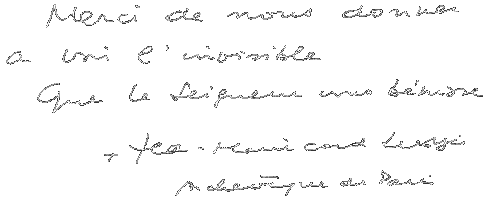 Merci de nous donner
a voir l'invisible
Que le Seigneur vous bénisse
+ Jean-Marie card Lustiger
Archevêque de Paris